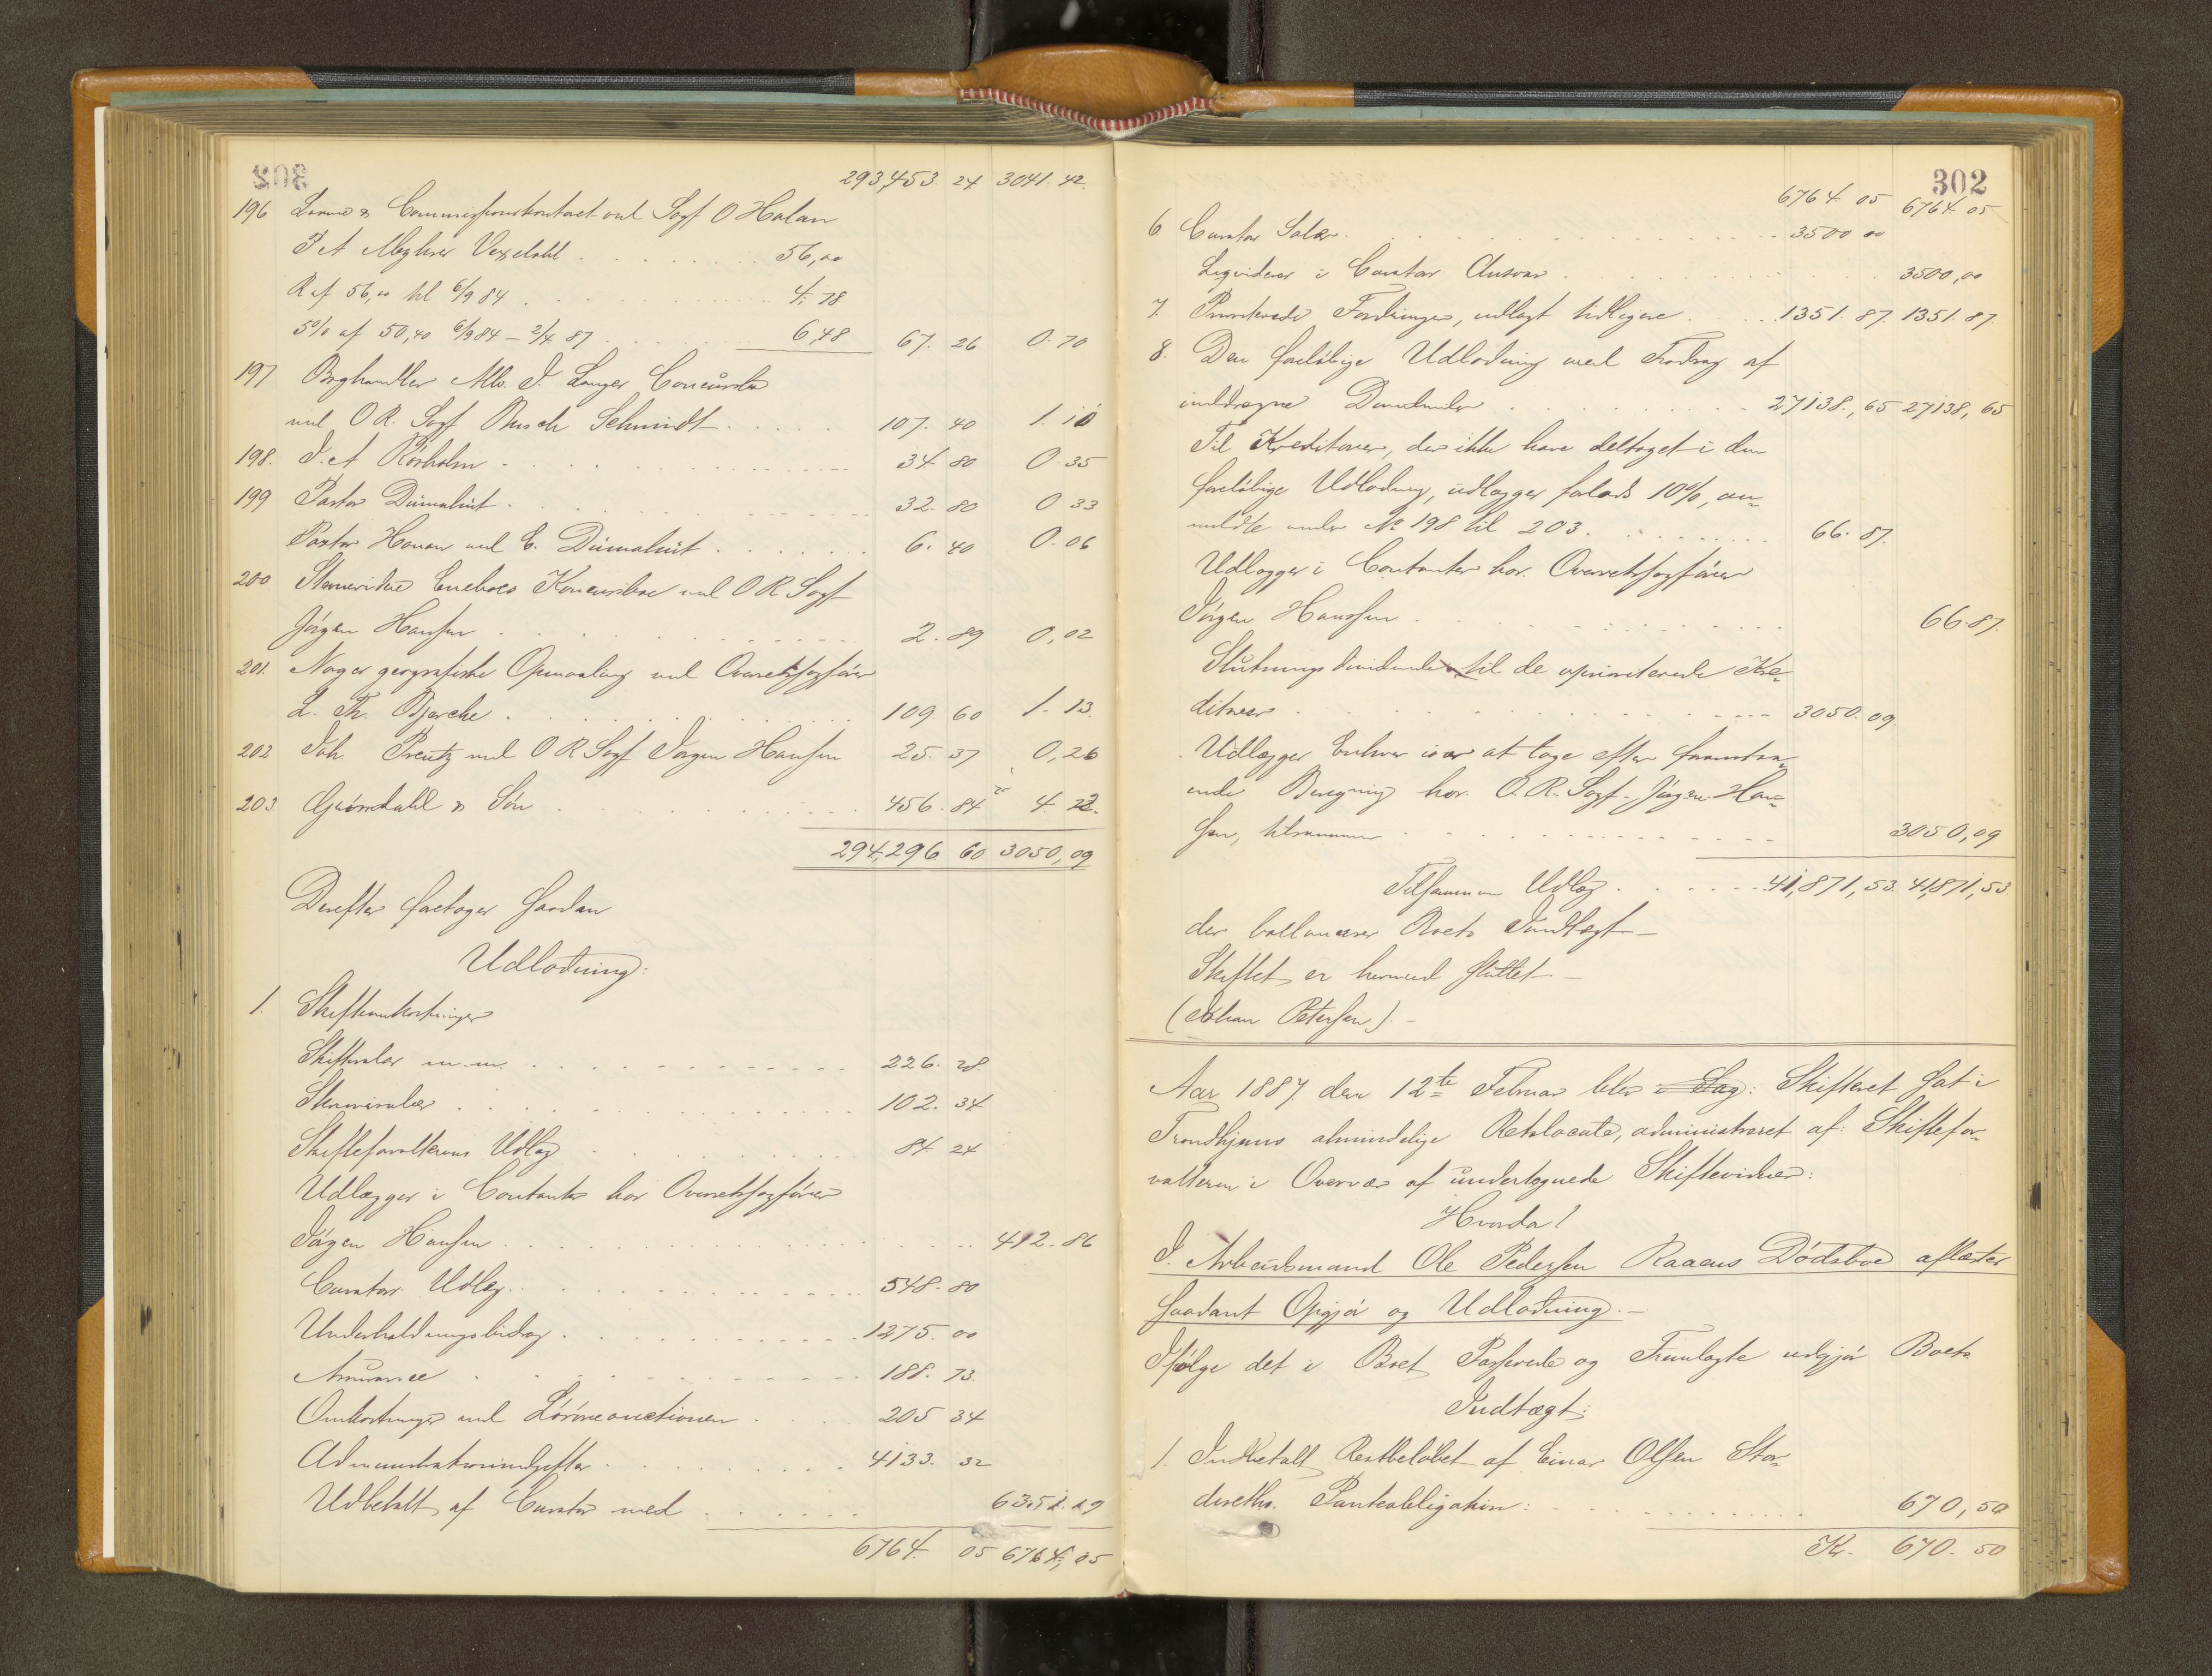 302
293,453. 24 3041. 42.
196 Laane & Commissionskontoret ved Sagf O Halan
I A Meyhrer Vexelobl . . . 56,00
R af 56,00 til 6/9 84 . . . 4. 78
5% af 50,40 6/9 84 – 2/4 87 . . . 6,48 67. 26 0. 70
197 Boghandler Alb. I. Langes Concursbo
ved O R. Sagf Busch Schmidt . . . 107. 40 1. 10
198. I. A Rösholm . . . 34 80 0 35
199 Pastor Dümalüt . . . 32. 80 0 33
Pastor Hanan ved C. Dümalüt . . . 6. 40 0. 06
200 Eneboes Konkursboe ved O R Sagf
Jörgen Hansen . . . 2. 89 0,02
201. Norges geografiske Opmaaling ved Overretssagförer
L. Th. Bjerche . . . 109. 60 1. 13.
202 Joh. Prentz ved O R Sagf Jörgen Hansen 25. 37 0,26
203. Gröndahl & Sön . . . 456. 84 4. 22.
294,296 60 3050,09
Derefter foretages saadan
Udlodning:
1. Skifteomkostninger
Skiftesalær m.m. . . . 226. 28
Skriversalær . . . 102. 34
Skifteforvalterens Udlæg . . . 84 24
Udlægges i Contanter hos Overretssagförer
Jörgen Hansen . . . 412. 86
Curators Udlæg . . . 548. 80
Underholdningsbidrag . . . 1275. 00
Assurance . . . 188. 73.
Omkostninger ved Lösöreauctionen . . . 205 34
Administrationsudgifter . . . 4133. 32
Udbetalt af Curator med . . . 6351. 19
6764. 05 6764, 05
302
6764. 05 6764. 05
6 Curators Salær . . . 3500 00
Liqvideres i Curators Ansvar . . . 3500,00
7. Prioriterede Fordringer, udlagt tidligere . . . 1351. 87. 1351. 87.
8. Den foreløbige Udlodning med Fradrag af
inddragne Dividender . . . 27138, 65 27138, 65
Til Kreditorer, der ikke have deltaget i den
foreløbige Udlodning, udlægges forlods 10%, an-
meldte under No 198 til 203 . . . 66. 87.
Udlægges i Contanter hos Overretssagförer
Jörgen Hanssen . . . 66. 87.
Slutningsdividende til de uprioriterede Kre-
ditorer . . . 3050. 09.
Udlægges Enhver især at tage efter foranstaa-
ende Beregning hos O. R. Sagf. Jörgen Han-
sen, tilsammen . . . 3050,09
Tilsammen Udlæg . . . 41,871, 53. 41,871, 53.
der ballancerer Boets Indtægt –
Skiftet er hermed sluttet –
(Johan Petersen). –
Aar 1887 den 12te Februar blev i Sag: Skifteret sat i
Trondhjems almindelige Retslocale, administreret af: Skiftefor-
valteren i Overvær af undertegnede Skiftevidner:
Hvorda!
I. Arbeidsmand Ole Pedersen Raaens Dödsboe aflæstes
saadant Opgjör og Udlodning. –
Ifølge det i Boet Passerede og Fremlagte udgjör Boets
Indtægt:
1. Indbetalt Restbelöbet af Einar Olsen Stor-
dereths. Panteobligation: . . . 670, 50
Kr. 670. 50